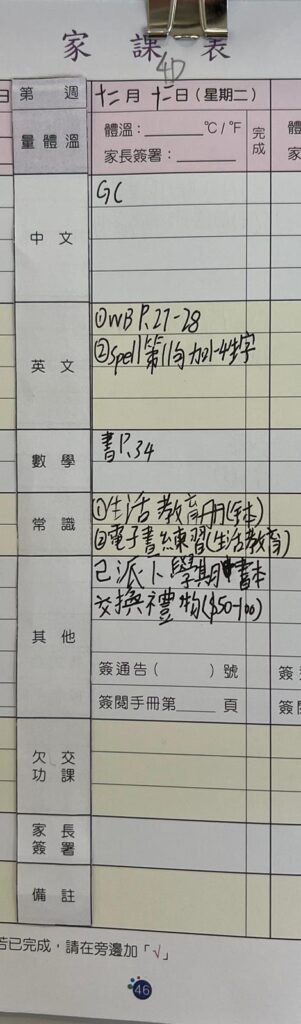 家課表
4D
第 週 十二月十二日(星期二)
量體溫 體溫:______ °C/°F 完成
家長簽署:______
中文 GC
英文 ①WB P.27-28
②spell第11句加1-4生字
數學 書P.34
常識 ①生活教育冊(本)
②電子書練習(生活教育)
其他 已派下學期書本
交換禮物($50-100)
簽通告( )號
簽閱手冊第____頁
欠交功課
家長簽署
備註
若已完成,請在旁邊加「√」
46